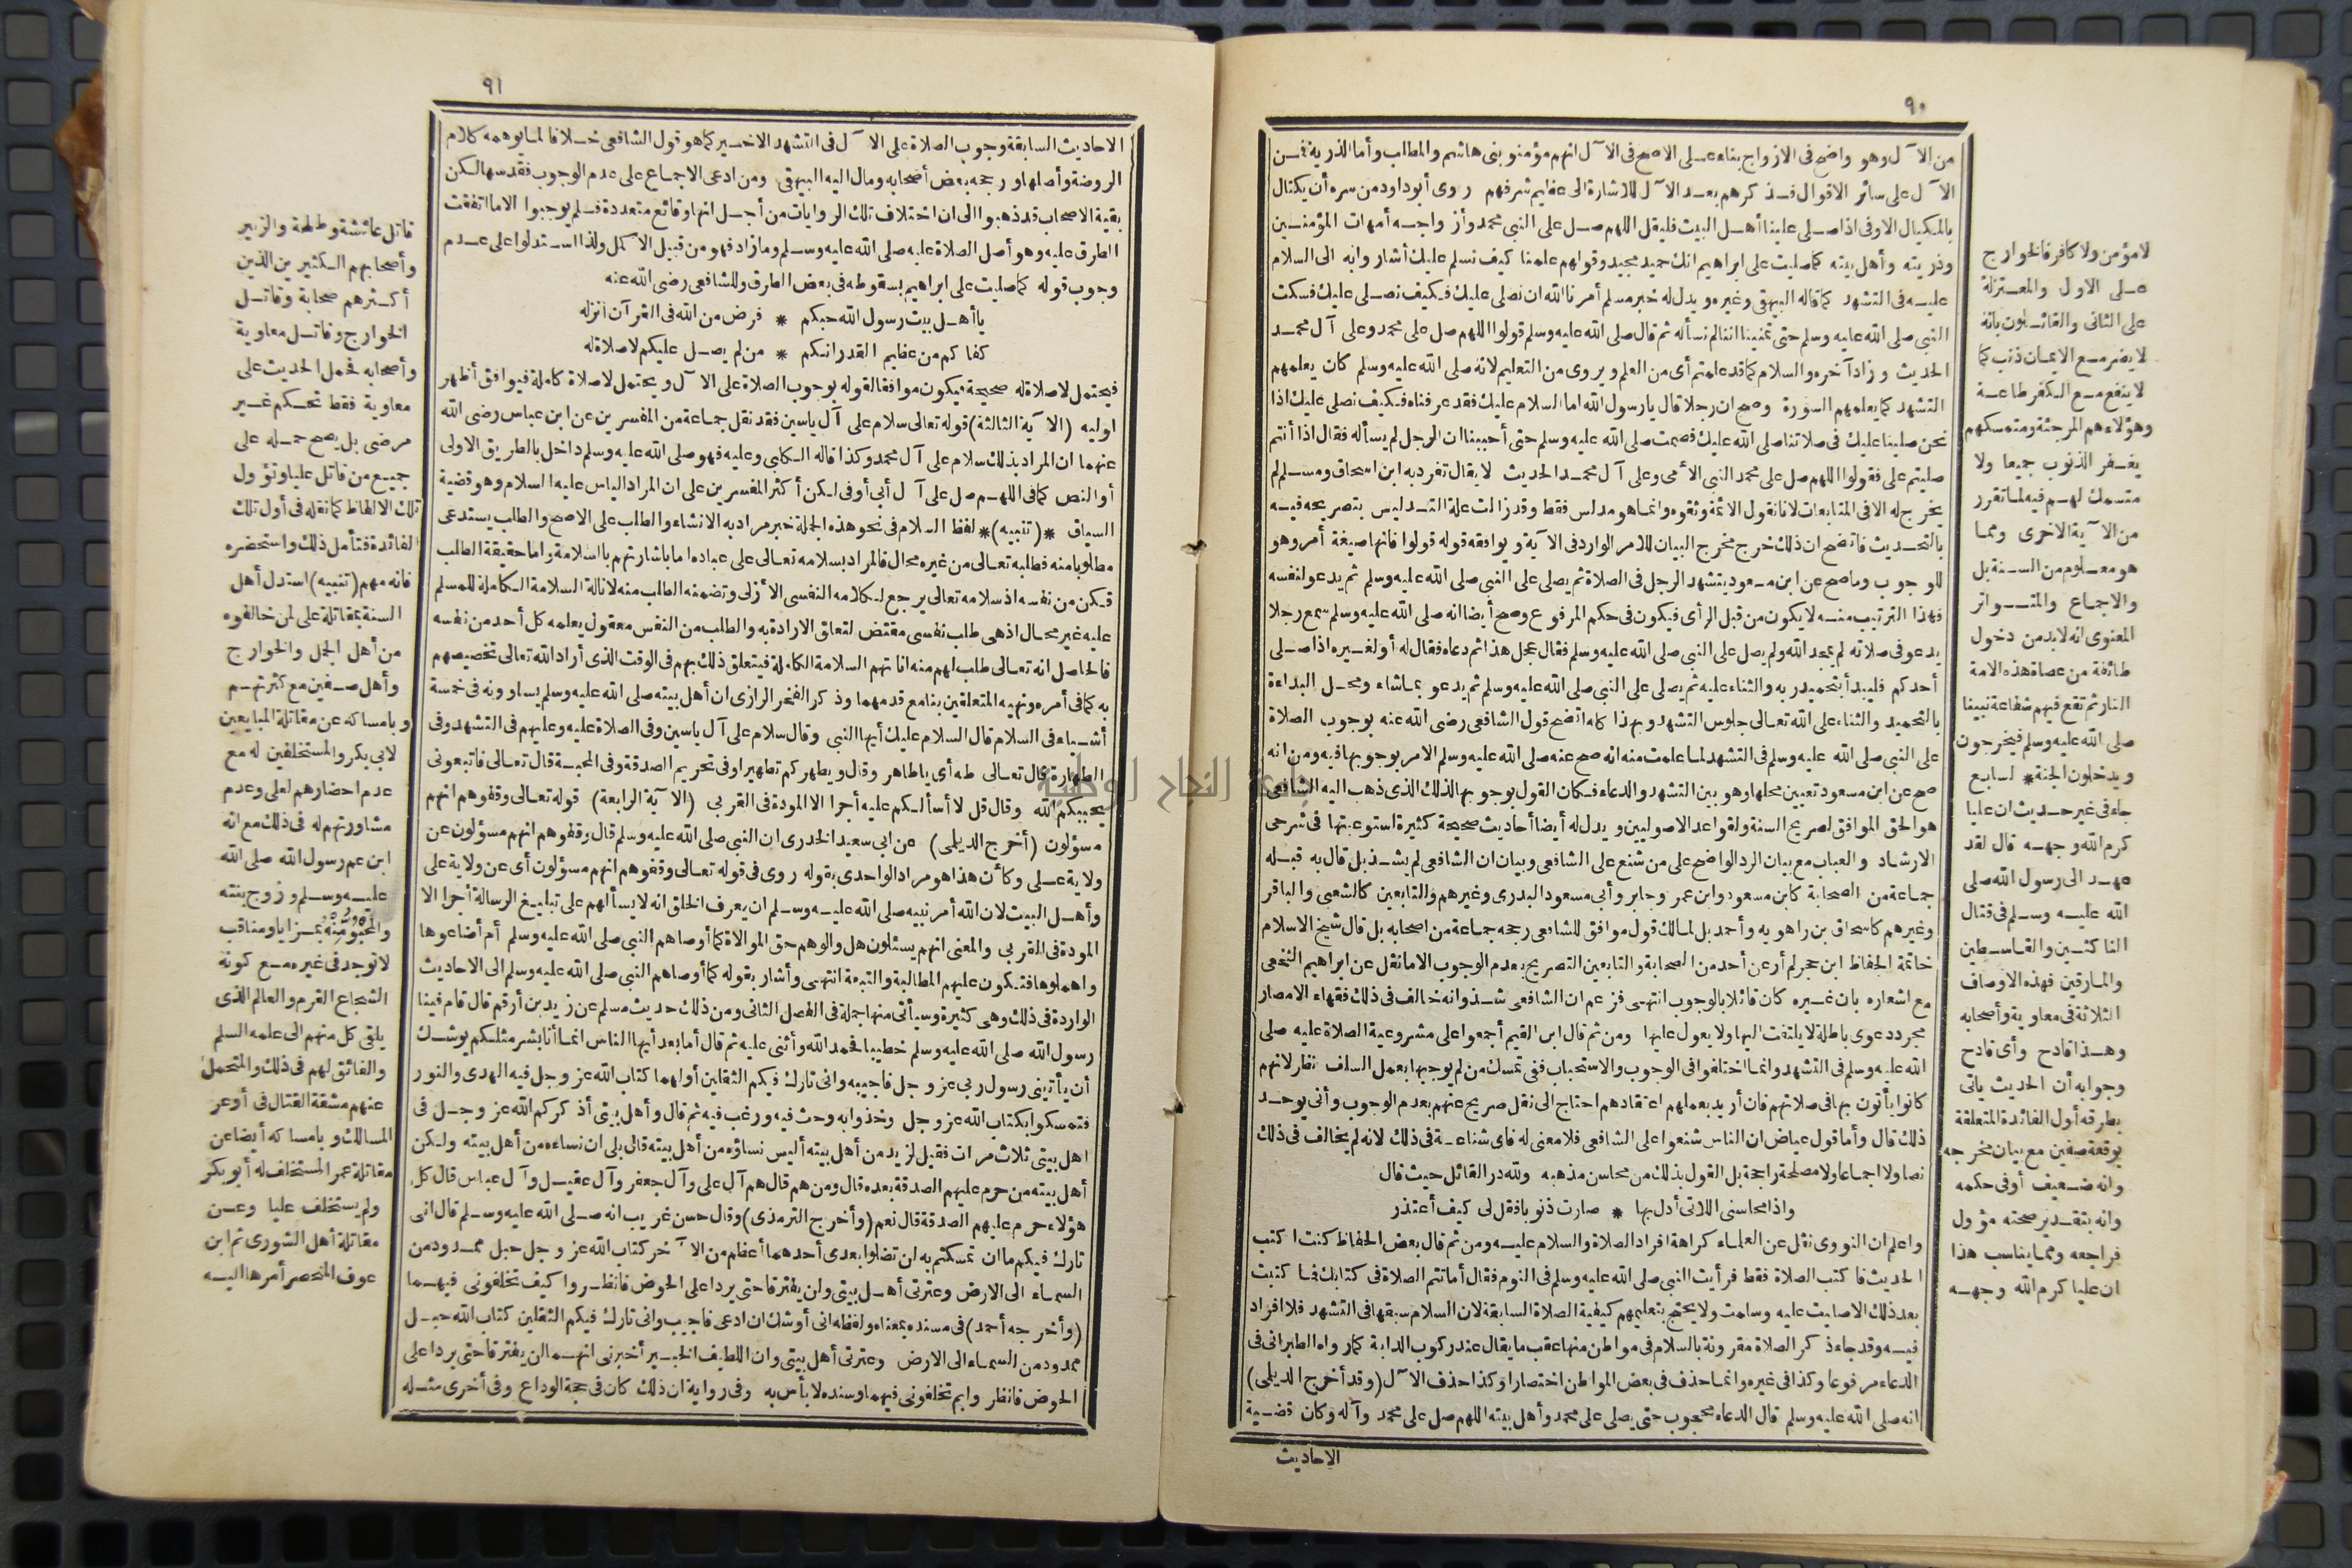 ٩٠
من الآل وهو واضح فى الازواج بناء على الاصح فى الآل انهم مؤمنو بنى هاشم والمطلب وأما الذرية فمن
الآل على سائر الاقوال فذكرهم بعد الآل للاشارة الى عظيم شرفهم روى أبو داود من سره أن يكتال
بالمكيال الاوفى اذا صلى علينا أهل البيت فليقل اللهم صل على النبى محمد وأزواجه أمهات المؤمنين
وذريته وأهل بيته كما صليت على ابراهيم انك حميد مجيد وقولهم علمنا كيف نسلم عليك أشاروا به الى السلام
عليه فى التشهد كما قاله البيهقى وغيره ويدل له خبر مسلم أمرنا الله ان نصلى عليك فكيف نصلى عليك فسكت
النبى صلى الله عليه وسلم حتى تمنينا اننا لم نسأله ثم قال صلى الله عليه وسلم قولوا اللهم صل على محمد وعلى آل محمد
الحديث وزاد آخره والسلام كما قد علمتم أى من العلم ويروى من التعليم لانه صلى الله عليه وسلم كان يعلمهم
التشهد كما يعلمهم السورة وصح ان رجلا قال يا رسول الله اما السلام عليك فقد عرفناه فكيف نصلى عليك اذا
نحن صلينا عليك فى صلاتنا صلى الله عليك فصمت صلى الله عليه وسلم حتى أحببنا ان الرجل لم يسأله فقال اذا أنتم
صليتم على فقولوا اللهم صل على محمد النبى الأمى وعلى آل محمد الحديث لا يقال تفرد به ابن اسحاق ومسلم لم
يخرج له الا فى المتابعات لانا نقول الائمة وثقوه وانما هو مدلس فقط وقد زالت علة التدليس بتصريحه فيه
بالتحديث فاتضح ان ذلك خرج مخرج البيان للامر الوارد فى الآية ويوافقه قوله قولوا فانها صيغة أمر وهو
للوجوب وما صح عن ابن مسعود يتشهد الرجل فى الصلاة ثم يصلى على النبى صلى الله عليه وسلم ثم يدعو لنفسه
فهذا الترتيب منه لا يكون من قبل الرأى فيكون فى حكم المرفوع وصح أيضا انه صلى الله عليه وسلم سمع رجلا
يدعو فى صلاته لم يمجد الله ولم يصل على النبى صلى الله عليه وسلم فقال عجل هذا ثم دعاه فقال له أو لغيره اذا صلى
أحدكم فليبدأ بتحميد ربه والثناء عليه ثم يصلى على النبى صلى الله عليه وسلم ثم يدعو بما شاء ومحل البداءة
بالتحميد والثناء على الله تعالى جلوس التشهد وبهذا كله اتضح قول الشافعى رضى الله عنه بوجوب الصلاة
على النبى صلى الله عليه وسلم فى التشهد لما علمت منه انه صح عنه صلى الله عليه وسلم الامر بوجوبها فيه ومن انه
صح عن ابن مسعود تعيين محلها وهو بين التشهد والدعاء فكان القول بوجوبها لذلك الذى ذهب اليه الشافعى
هو الحق الموافق لصريح السنة ولقواعد الاصوليين ويدل له أيضا أحاديث صحيحة كثيرة استوعبتها فى شرحى
الارشاد والعباب مع بيان الرد الواضح على من شنع على الشافعى وبيان ان الشافعى لم يشذ بل قال به قبله
جماعة من الصحابة كابن مسعود وابن عمر وجابر وأبى مسعود البدرى وغيرهم والتابعين كالشعبى والباقر
وغيرهم كاسحاق بن راهويه وأحمد بل لمالك قول موافق للشافعى رجحه جماعة من اصحابه بل قال شيخ الاسلام
خاتمة الحفاظ ابن حجر لم أر عن أحد من الصحابة والتابعين التصريح بعدم الوجوب الا ما نقل عن ابراهيم النخعى
مع اشعاره بان غيره كان قائلا بالوجوب انتهى فزعم ان الشافعى شذ وانه خالف فى ذلك فقهاء الامصار
مجرد دعوى باطلة لا يلتفت اليها ولا يعول عليها ومن ثم قال ابن القيم أجمعوا على مشروعية الصلاة عليه صلى
الله عليه وسلم فى التشهد وانما اختلفوا فى الوجوب والاستحباب ففى تمسك من لم يوجبها بعمل السلف نظر لانهم
كانوا يأتون بها فى صلاتهم فان أريد بعملهم اعتقادهم احتاج الى نقل صريح عنهم بعدم الوجوب وأنى يوجد
ذلك قال وأما قول عياض ان الناس شنعوا على الشافعى فلا معنى له فاى شناعة فى ذلك لانه لم يخالف فى ذلك
نصا ولا اجماعا ولا مصلحة راجحة بل القول بذلك من محاسن مذهبه ولله در القائل حيث قال
واذا محاسنى اللاتى أدل بها * صارت ذنوبا فقل لى كيف أعتذر
واعلم ان النووى نقل عن العلماء كراهة افراد الصلاة والسلام عليه ومن ثم قال بعض الحفاظ كنت اكتب
الحديث فاكتب الصلاة فقط فرأيت النبى صلى الله عليه وسلم فى النوم فقال أما تتم الصلاة فى كتابك فما كتبت
بعد ذلك الا صليت عليه وسلمت ولا يحتج بتعليمهم كيفية الصلاة السابقة لان السلام سبقها فى التشهد فلا افراد
فيه وقد جاء ذكر الصلاة مقرونة بالسلام فى مواطن منها عقب ما يقال عند ركوب الدابة كما رواه الطبرانى فى
الدعاء مرفوعا وكذا فى غيره وانما حذف فى بعض المواطن اختصارا وكذا حذف الآل (وقد أخرج الديلمى)
انه صلى الله عليه وسلم قال الدعاء محجوب حتى يصلى على محمد وأهل بيته اللهم صل على محمد وآله وكان قضية
الاحاديث
لا مؤمن ولا كافر فالخوارج
على الاول والمعتزلة
على الثانى والقائلون بانه
لا يضر مع الايمان ذنب كما
لا ينفع مع الكفر طاعة
وهؤلاء هم المرجئة ومتمسكهم
يغفر الذنوب جميعا ولا
متمسك لهم فيه لما تقرر
من الآية الاخرى ومما
هو معلوم من السنة بل
والاجماع والمتواتر
المعنوى انه لا بد من دخول
طائفة من عصاة هذه الامة
النار ثم تقع فيهم شفاعة نبينا
صلى الله عليه وسلم فيخرجون
ويدخلون الجنة * سابع
جاء فى غير حديث ان عليا
كرم الله وجهه قال لقد
عهد الى رسول الله صلى
الله عليه وسلم فى قتال
الناكثين والقاسطين
والمارقين فهذه الاوصاف
الثلاثة فى معاوية وأصحابه
وهذا قادح وأى قادح
وجوابه أن الحديث ياتى
بطرقه أول الفائدة المتعلقة
بوقعة صفين مع بيان مخرجه
وانه ضعيف أو فى حكمه
وانه بتقدير صحته مؤول
فراجعه ومما يناسب هذا
ان عليا كرم الله وجهه
٩١
الاحاديث السابقة وجوب الصلاة على الآل فى التشهد الاخير كما هو قول الشافعى خلافا لما يوهمه كلام
الروضة وأصلها ورجحه بعض أصحابه ومال اليه البيهقى ومن ادعى الاجماع على عدم الوجوب فقد سها لكن
بقية الاصحاب قد ذهبوا الى ان اختلاف تلك الروايات من أجل انها وقائع متعددة فلم يوجبوا الا ما اتفقت
الطرق عليه وهو أصل الصلاة عليه صلى الله عليه وسلم وما زاد فهو من قبيل الاكمل ولذا استدلوا على عدم
وجوب قوله كما صليت على ابراهيم بسقوطه فى بعض الطرق وللشافعى رضى الله عنه
يا أهل بيت رسول الله حبكم * فرض من الله فى القرآن انزله
كفاكم من عظيم القدر انكم * من لم يصل عليكم لا صلاة له
فيحتمل لا صلاة له صحيحة فيكون موافقا لقوله بوجوب الصلاة على الآل ويحتمل لا صلاة كاملة فيوافق أظهر
قوليه (الآية الثالثة) قوله تعالى سلام على آل ياسين فقد نقل جماعة من المفسرين عن ابن عباس رضى الله
عنهما ان المراد بذلك سلام على آل محمد وكذا قاله الكلبى وعليه فهو صلى الله عليه وسلم داخل بالطريق الاولى
أو النص كما فى اللهم صل على آل أبى أوفى لكن أكثر المفسرين على ان المراد الياس عليه السلام وهو قضية
السياق *(تنبيه)* لفظ السلام فى نحو هذه الجملة خبر مراد به الانشاء والطلب على الاصح والطلب يستدعى
مطلوبا منه فطلبه تعالى من غيره محال فالمراد بسلامه تعالى على عباده اما باشارتهم بالسلامة واما حقيقة الطلب
فكن من نفسه اذ سلامه تعالى يرجع لكلامه النفسى الأزلى وتضمنه الطلب منه لانالة السلامة الكاملة للمسلم
عليه غير محال اذ هى طلب نفسى مقتض لتعلق الارادة به والطلب من النفس معقول يعلمه كل أحد من نفسه
فالحاصل انه تعالى طلب لهم منه انالتهم السلامة الكاملة فيتعلق ذلك بهم فى الوقت الذى أراد الله تعالى تخصيصهم
به كما فى أمره ونهيه المتعلقين بنا مع قدمهما وذكر الفخر الرازى ان أهل بيته صلى الله عليه وسلم يساوونه فى خمسة
أشياء فى السلام قال السلام عليك أيها النبى وقال سلام على آل ياسين وفى الصلاة عليه وعليهم فى التشهد وفى
الطهارة قال تعالى طه أى يا طاهر وقال ويطهركم تطهيرا وفى تحريم الصدقة وفى المحبة قال تعالى فاتبعونى
يحببكم الله وقال قل لا أسألكم عليه أجرا الا المودة فى القربى (الآية الرابعة) قوله تعالى وقفوهم انهم
مسؤلون (أخرج الديلمى) عن ابى سعيد الخدرى ان النبى صلى الله عليه وسلم قال وقفوهم انهم مسؤلون عن
ولاية على وكأن هذا هو مراد الواحدى بقوله روى فى قوله تعالى وقفوهم انهم مسؤلون أى عن ولاية على
وأهل البيت لان الله أمر نبيه صلى الله عليه وسلم ان يعرف الخلق انه لا يسألهم على تبليغ الرسالة أجرا الا
المودة فى القربى والمعنى انهم يسئلون هل والوهم حق الموالاة كما أوصاهم النبى صلى الله عليه وسلم أم أضاعوها
واهملوها فتكون عليهم المطالبة والتبعة انتهى وأشار بقوله كما أوصاهم النبى صلى الله عليه وسلم الى الاحاديث
الواردة فى ذلك وهى كثيرة وسيأتى منها جملة فى الفصل الثانى ومن ذلك حديث مسلم عن زيد بن أرقم قال قام فينا
رسول الله صلى الله عليه وسلم خطيبا فحمد الله وأثنى عليه ثم قال أما بعد أيها الناس انما أنا بشر مثلكم يوشك
أن يأتينى رسول ربى عز وجل فاجيبه وانى تارك فيكم الثقلين أولهما كتاب الله عز وجل فيه الهدى والنور
فتمسكوا بكتاب الله عز وجل وخذوا به وحث فيه ورغب فيه ثم قال وأهل بيتى أذكركم الله عز وجل فى
اهل بيتى ثلاث مرات فقيل لزيد من أهل بيته أليس نساؤه من أهل بيته قال بلى ان نساءه من أهل بيته ولكن
أهل بيته من حرم عليهم الصدقة بعده قال ومن هم قال هم آل على وآل جعفر وآل عقيل وآل عباس قال كل
هؤلاء حرم عليهم الصدقة قال نعم (وأخرج الترمذى) وقال حسن غريب انه صلى الله عليه وسلم قال انى
تارك فيكم ما ان تمسكتم به لن تضلوا بعدى أحدهما أعظم من الآخر كتاب الله عز وجل حبل ممدود من
السماء الى الارض وعترتى أهل بيتى ولن يفترقا حتى يردا على الحوض فانظروا كيف تخلفونى فيهما
(وأخرجه أحمد) فى مسنده بمعناه ولفظه انى أوشك ان ادعى فاجيب وانى تارك فيكم الثقلين كتاب الله حبل
ممدود من السماء الى الارض وعترتى أهل بيتى وان اللطيف الخبير أخبرنى انهما لن يفترقا حتى يردا على
الحوض فانظروا بم تخلفونى فيهما وسنده لا بأس به وفى رواية ان ذلك كان فى حجة الوداع وفى أخرى مثله
قاتل عائشة وطلحة والزبير
وأصحابهم الكثيرين الذين
أكثرهم صحابة وقاتل
الخوارج وقاتل معاوية
وأصحابه فحمل الحديث على
معاوية فقط تحكم غير
مرضى بل يصح حمله على
جميع من قاتل عليا وتؤول
تلك الالفاظ كما نقله فى أول تلك
الفائدة فتأمل ذلك واستحضره
فانه مهم (تنبيه) استدل أهل
السنة بمقاتلة على لمن خالفوه
من أهل الجمل والخوارج
وأهل صفين مع كثرتهم
وبامساكه عن مقاتلة المبايعين
لابى بكر والمستخلفين له مع
عدم احضارهم لعلى وعدم
مشاورتهم له فى ذلك مع انه
ابن عم رسول الله صلى الله
عليه وسلم وزوج بنته
والمحبو منه بمزايا ومناقب
لا توجد فى غيره مع كونه
الشجاع القرم والعالم الذى
يلقى كل منهم الى علمه السلم
والفائق لهم فى ذلك والمتحمل
عنهم مشقة القتال فى أوعر
المسالك وبامساكه أيضا عن
مقاتلة عمر المستخلف له أبو بكر
ولم يستخلف عليا وعن
مقاتلة أهل الشورى ثم ابن
عوف المنحصر أمرها اليه
جامعة النجاح الوطنية